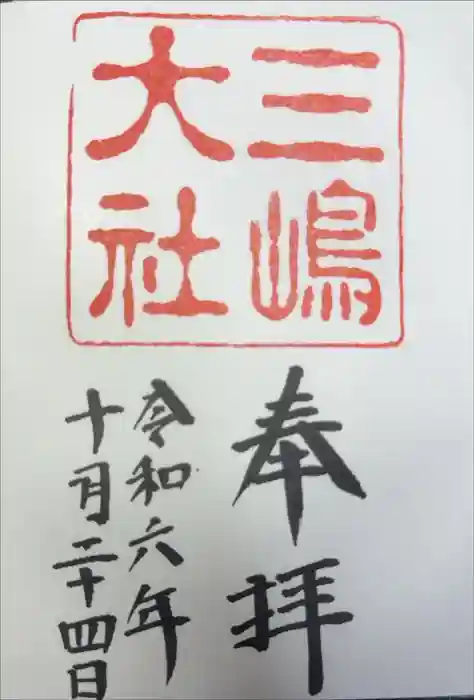 三嶋
大社
奉拝
令和六年
十月二十四日